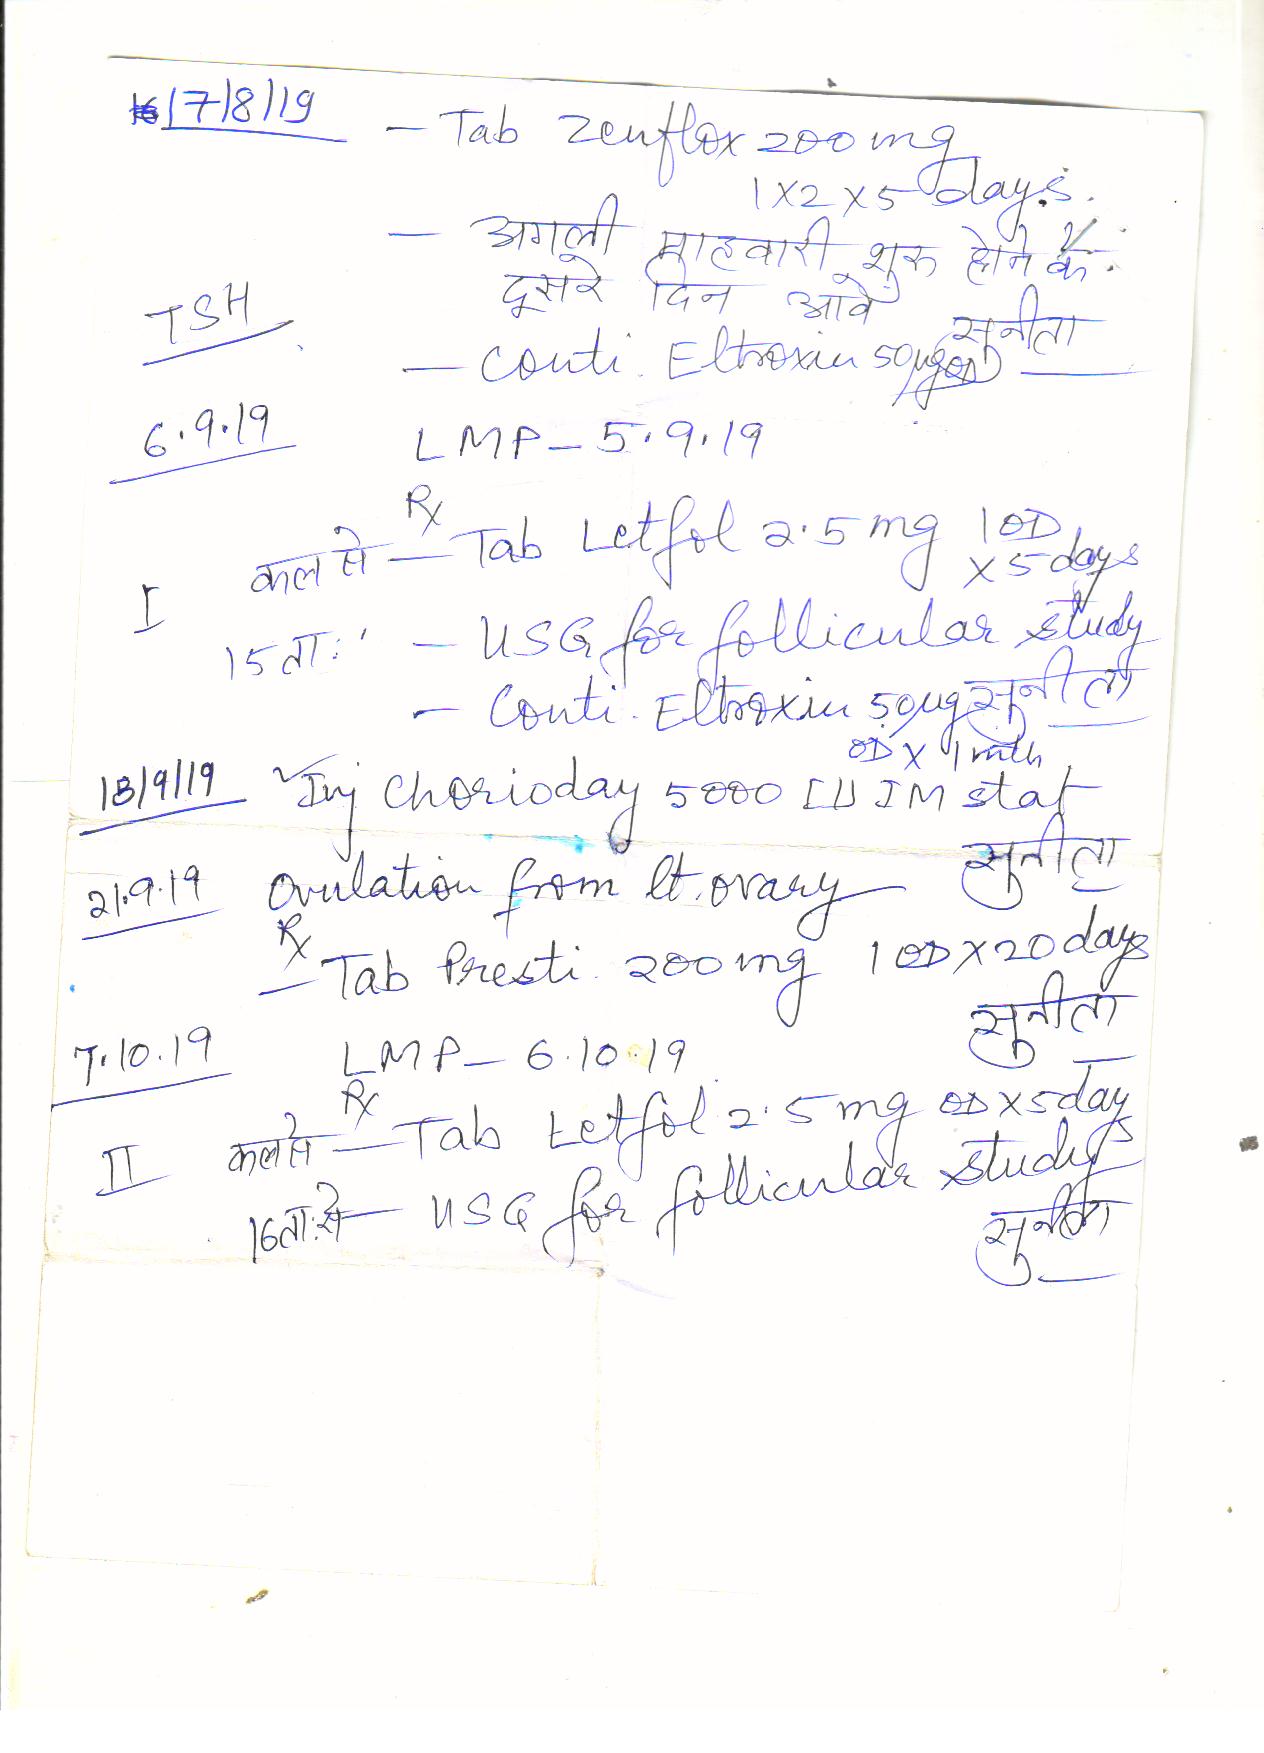 17/8/19 - Tab Zenflox 200mg
1X2 X 5 days.
- अगली माहवारी शुरू होने के
दूसरे दिन आवे
TSH
सुनीता
- Conti. Eltroxin 50µg OD
6.9.19 LMP - 5.9.19
Rx
कल से - Tab Letfol 2.5mg 1 OD
X 5 days
I
15 ताः - USG for follicular study
- Conti. Eltroxin 50µg सुनीता
OD X 1 mth
13/9/19 Inj Chorioday 5000 IU IM stat
सुनीता
21.9.19 Ovulation from lt. ovary
Rx
- Tab Presti. 200mg 1 OD X 20 days
सुनीता
7.10.19 LMP - 6.10.19
Rx
II कल से - Tab Letfol 2.5mg OD X 5 days
16 ताः से - USG for follicular study
सुनीता